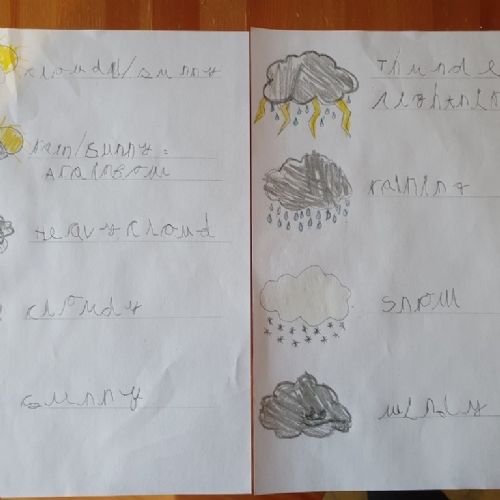 cloudy/sunny
rain/sunny =
A rainbow
Heavy cloud
cloudy
sunny
Thunde
lightnin
raining
snow
windy